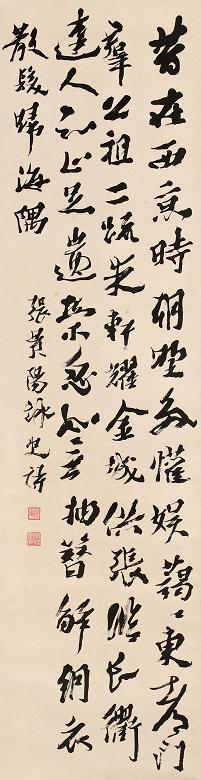 昔在西京時朝野多懽娛藹〻東都門
羣公祖二疏朱軒耀金城供張臨長衢
達人知止足遺榮忽如無抽簪解朝衣
散髮歸海隅
張景陽詠史詩